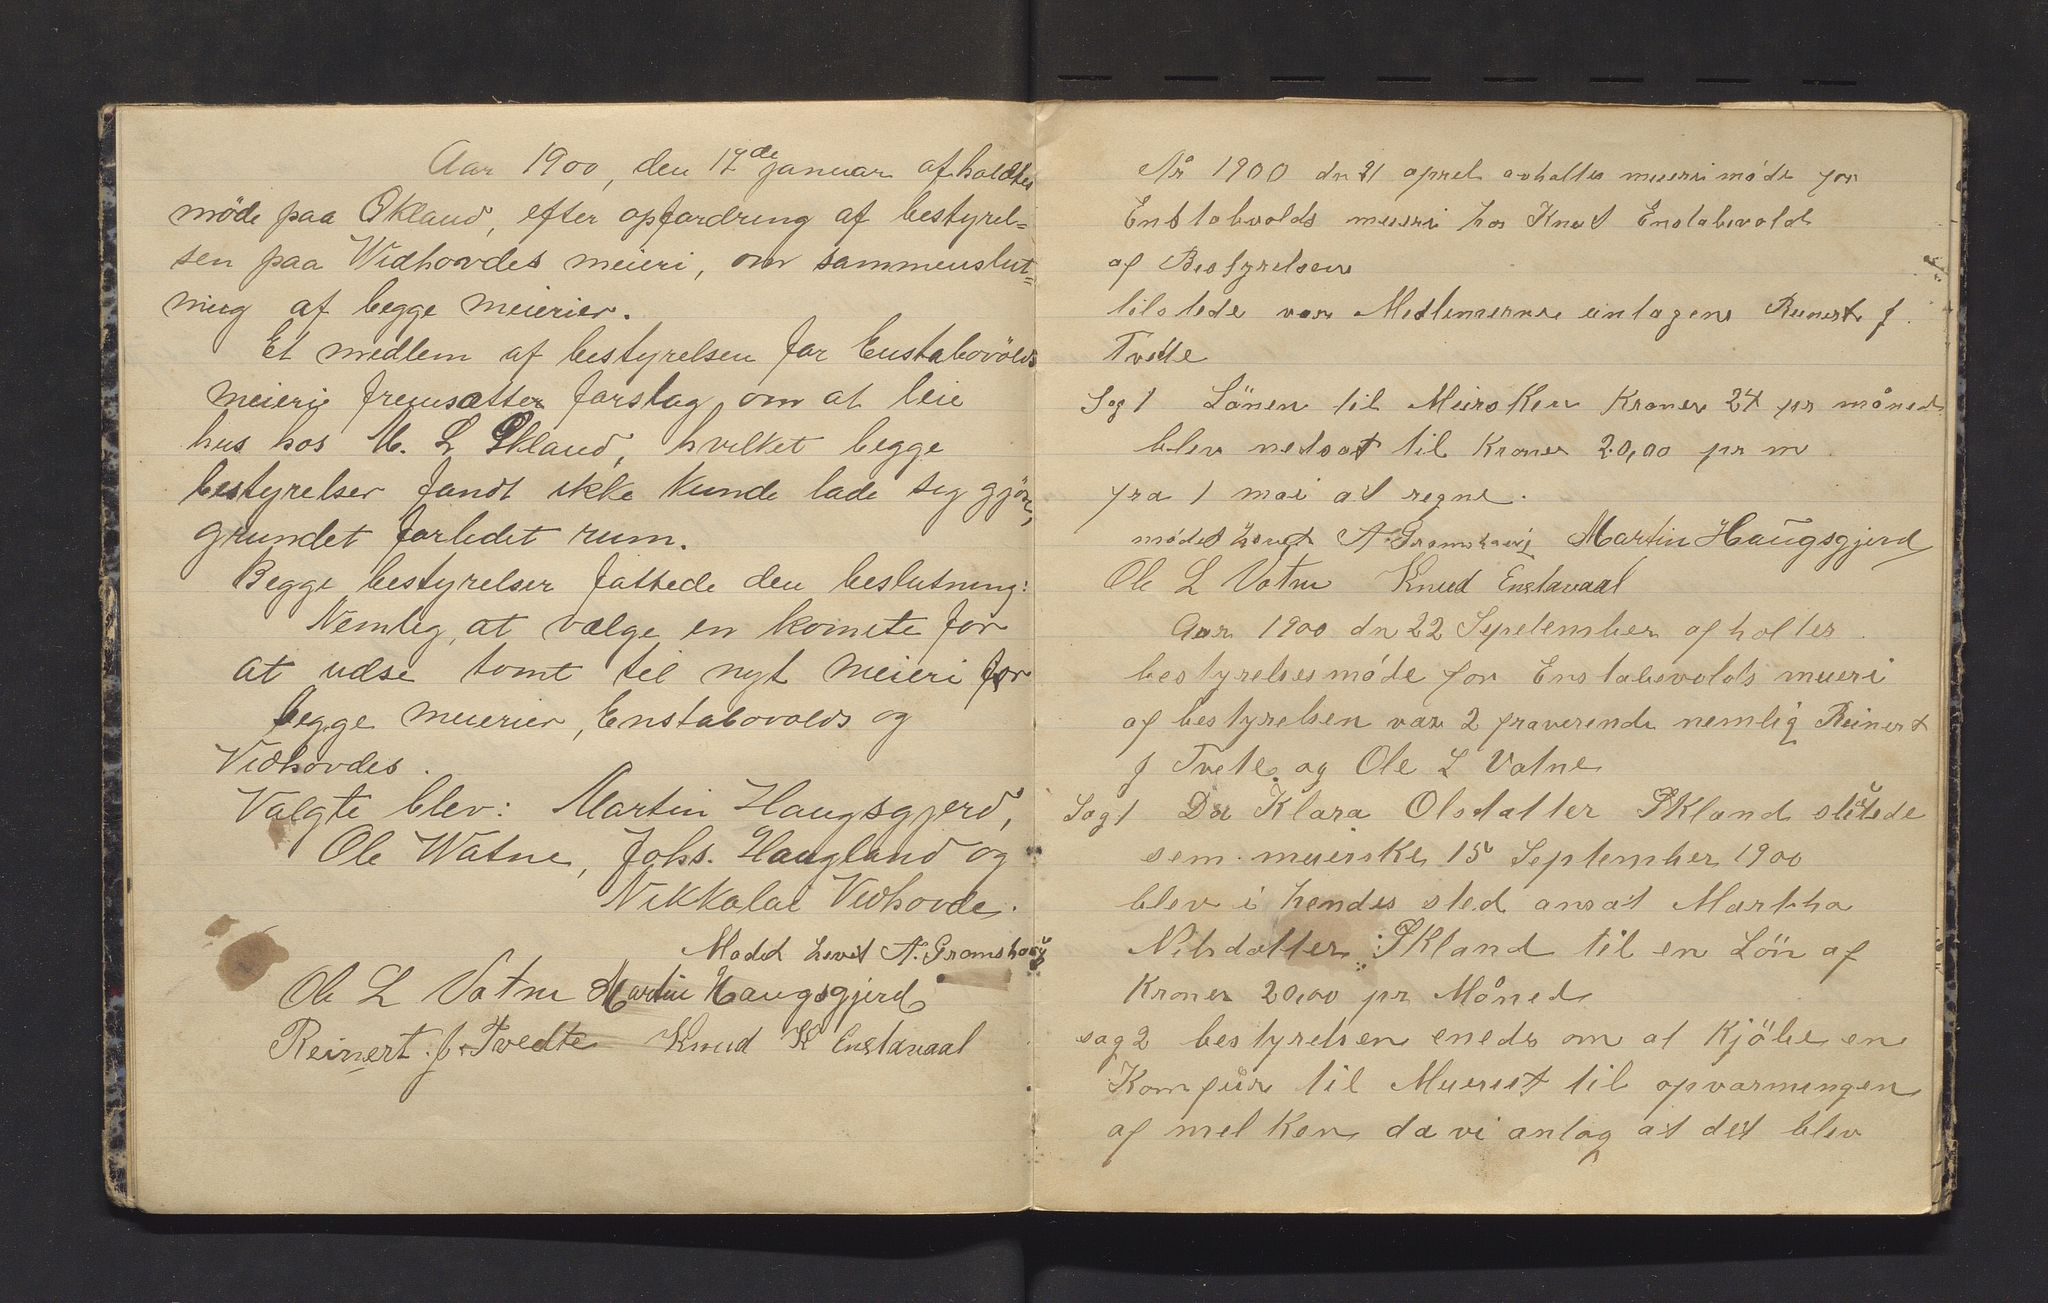 Aar 1900, den 17de januar afholdtes
möde paa Økland, efter opfordring af bestyrel=
sen paa Widhovdes meieri, om sammenslut=
ning af begge meierier.
Et medlem af bestyrelsen for Enstabovolds
meieri fremsætter forslag om at leie
hus hos M. L. Økland, hvilket begge
bestyrelser fandt ikke kunde lade sig gjöre,
grundet forledet rum.
Begge bestyrelser fattede den beslutning:
Nemlig, at vælge en komite for
at udse tomt til nyt meieri for
begge meierier, Enstabovolds og
Vidhovdes.
Valgte blev: Martin Haugsgjerd,
Ole Watne, Johs. Haugland og
Nikkolai Vidhovde.
Mødd hevet A. Gramshaug
Ole L Vatne Martin Haugsgjerd
Reinert. J. Tvedte Knud K Enstavaal
År 1900 dn 21 aprel avholtes meieri möde for
Enstabvolds meieri hos Knut Enstabevold
af Bestyrelsen
tilstede var Medlemerne untagen Reinert J.
Tvette
Sag 1 Lönen til Meiersken Kroner 24 pr måned
blev nedsat til Kroner 20,00 pr m.
fra 1 mai at regne.
mödet hevet A Gramshaug Martin Haugsgjerd
Ole L Vatne Knud Enstavaal
Aar 1900 dn 22 September afholtes
bestyrelsesmöde for Enstabevolds meieri
af bestyrelsen var 2 fraverende nemlig Reinert
J Tvete og Ole L Vatne
Sag 1 Da Klara Olsdatter Økland slútede
sem meierske 15 September 1900
blev i hendes sted ansat Martha
Nilsdatter Økland til en Lön af
Kroner 20,00 pr Måned
sag 2 bestyrelsen eneds om at Kjöbe en
Komfúr til Meieriet til opvarmingen
af melken da vi antog at det blev